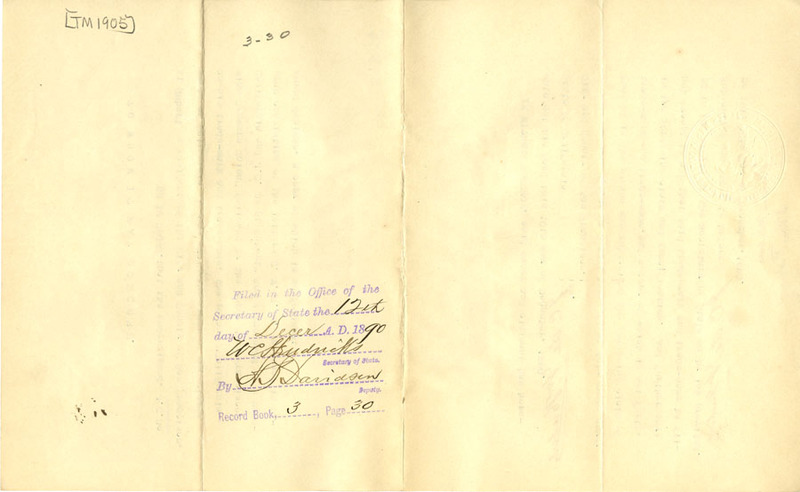 [TM 1905]
3-30
Filed in the Office of the
Secretary of State the 12th
day of Decer A. D. 1890
W C Hendricks
Secretary of State.
By Davidson
Deputy.
Record Book, 3, Page 30